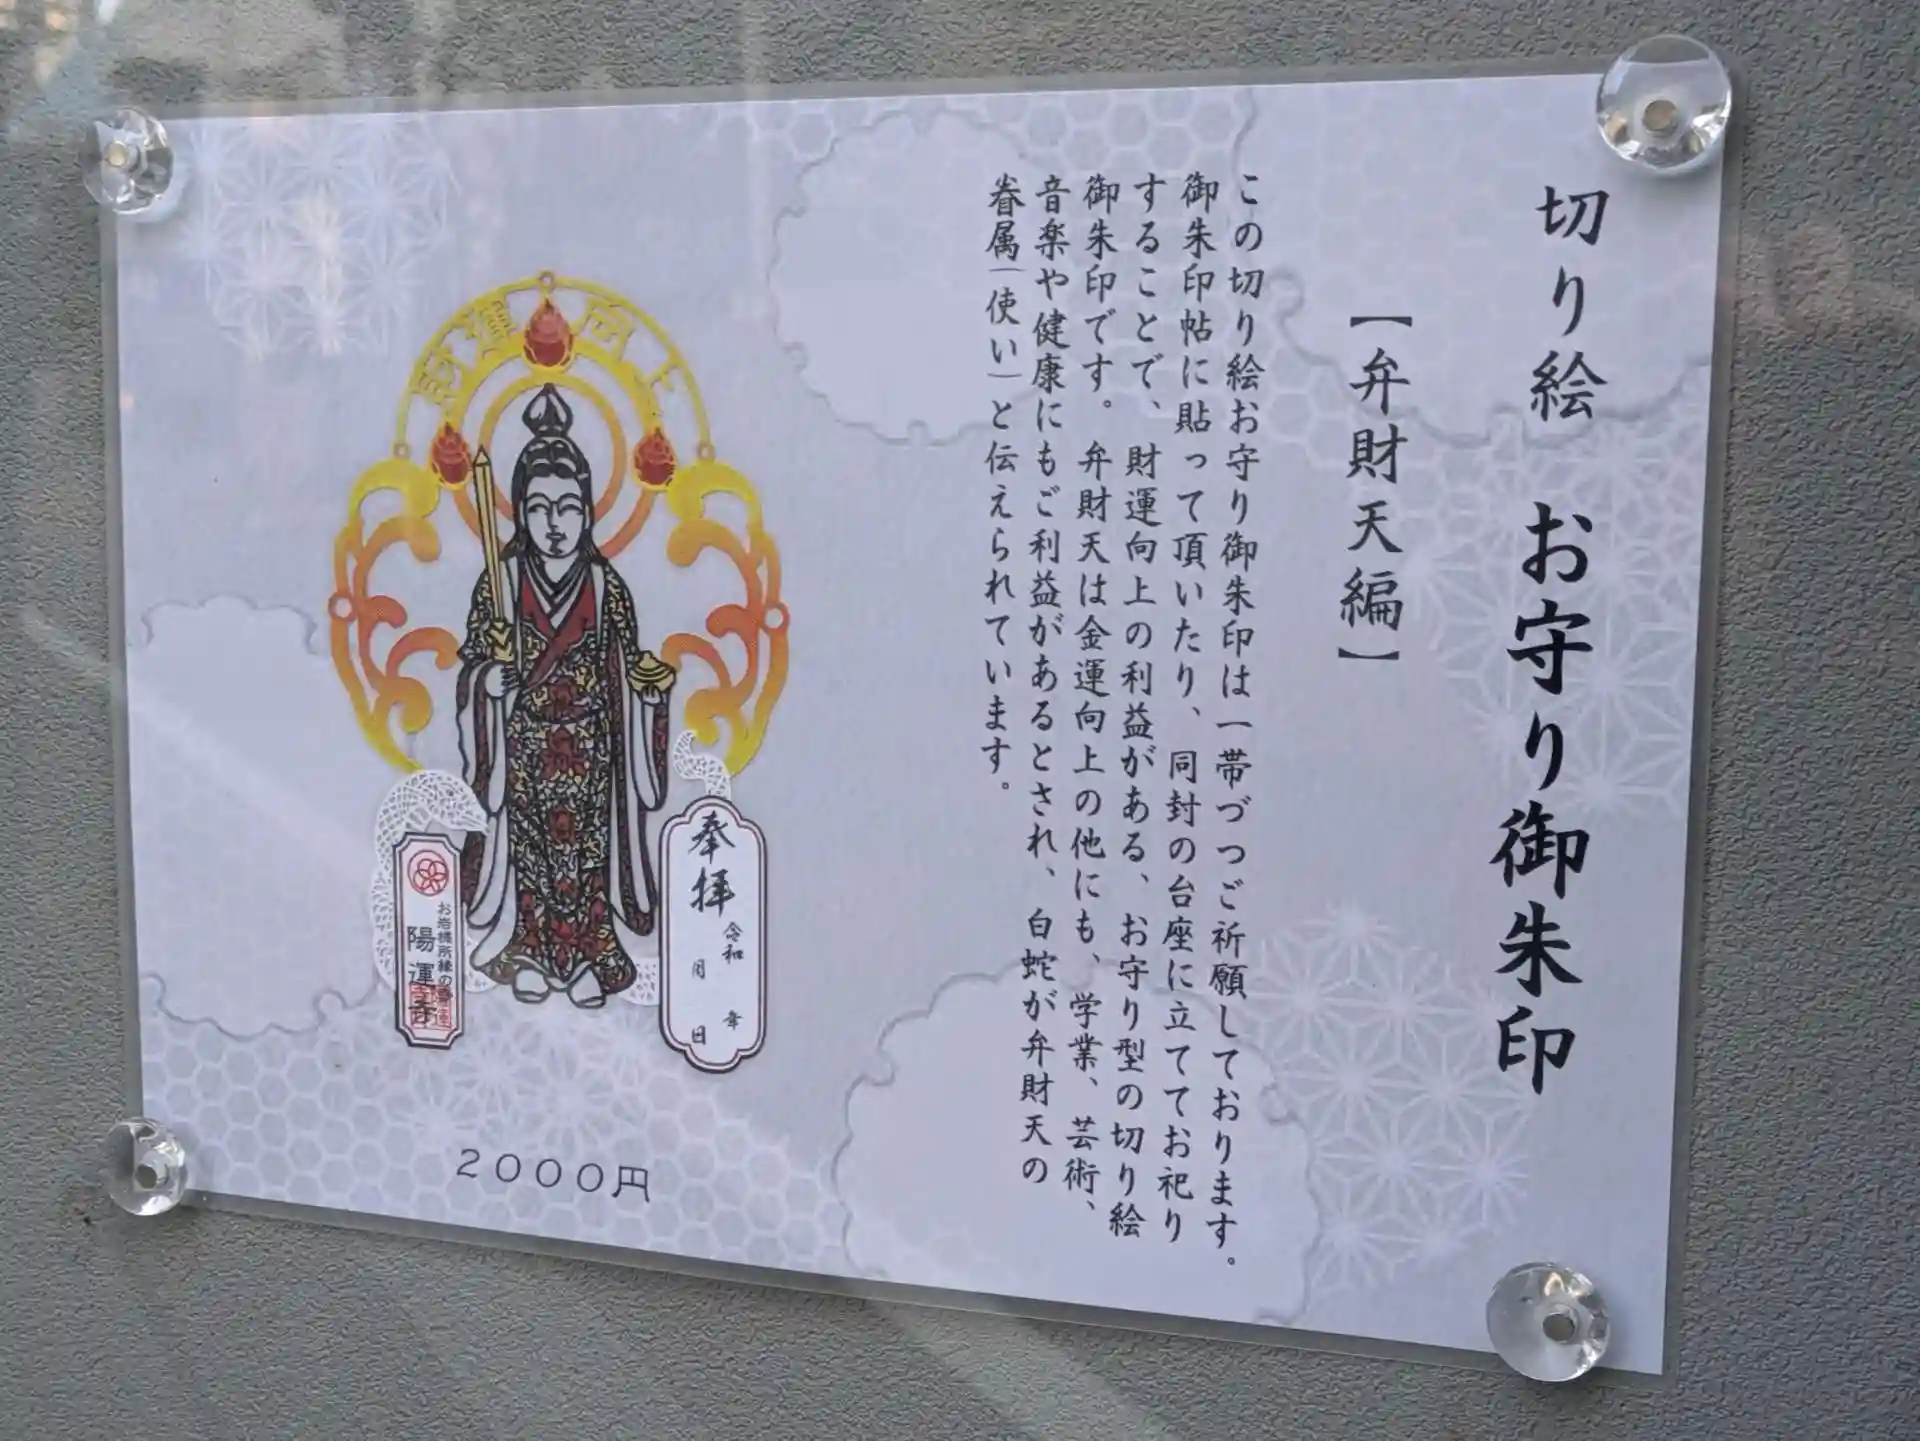 切り絵　お守り御朱印
【弁財天編】
この切り絵お守り御朱印は一帯づつご祈願しております。
御朱印帖に貼って頂いたり、同封の台座に立ててお祀り
することで、財運向上の利益がある、お守り型の切り絵
御朱印です。弁財天は金運向上の他にも、学業、芸術、
音楽や健康にもご利益があるとされ、白蛇が弁財天の
眷属(使い)と伝えられています。
財運向上
奉拝
令和　年
月　日
お岩様所縁の
陽運寺
2000円